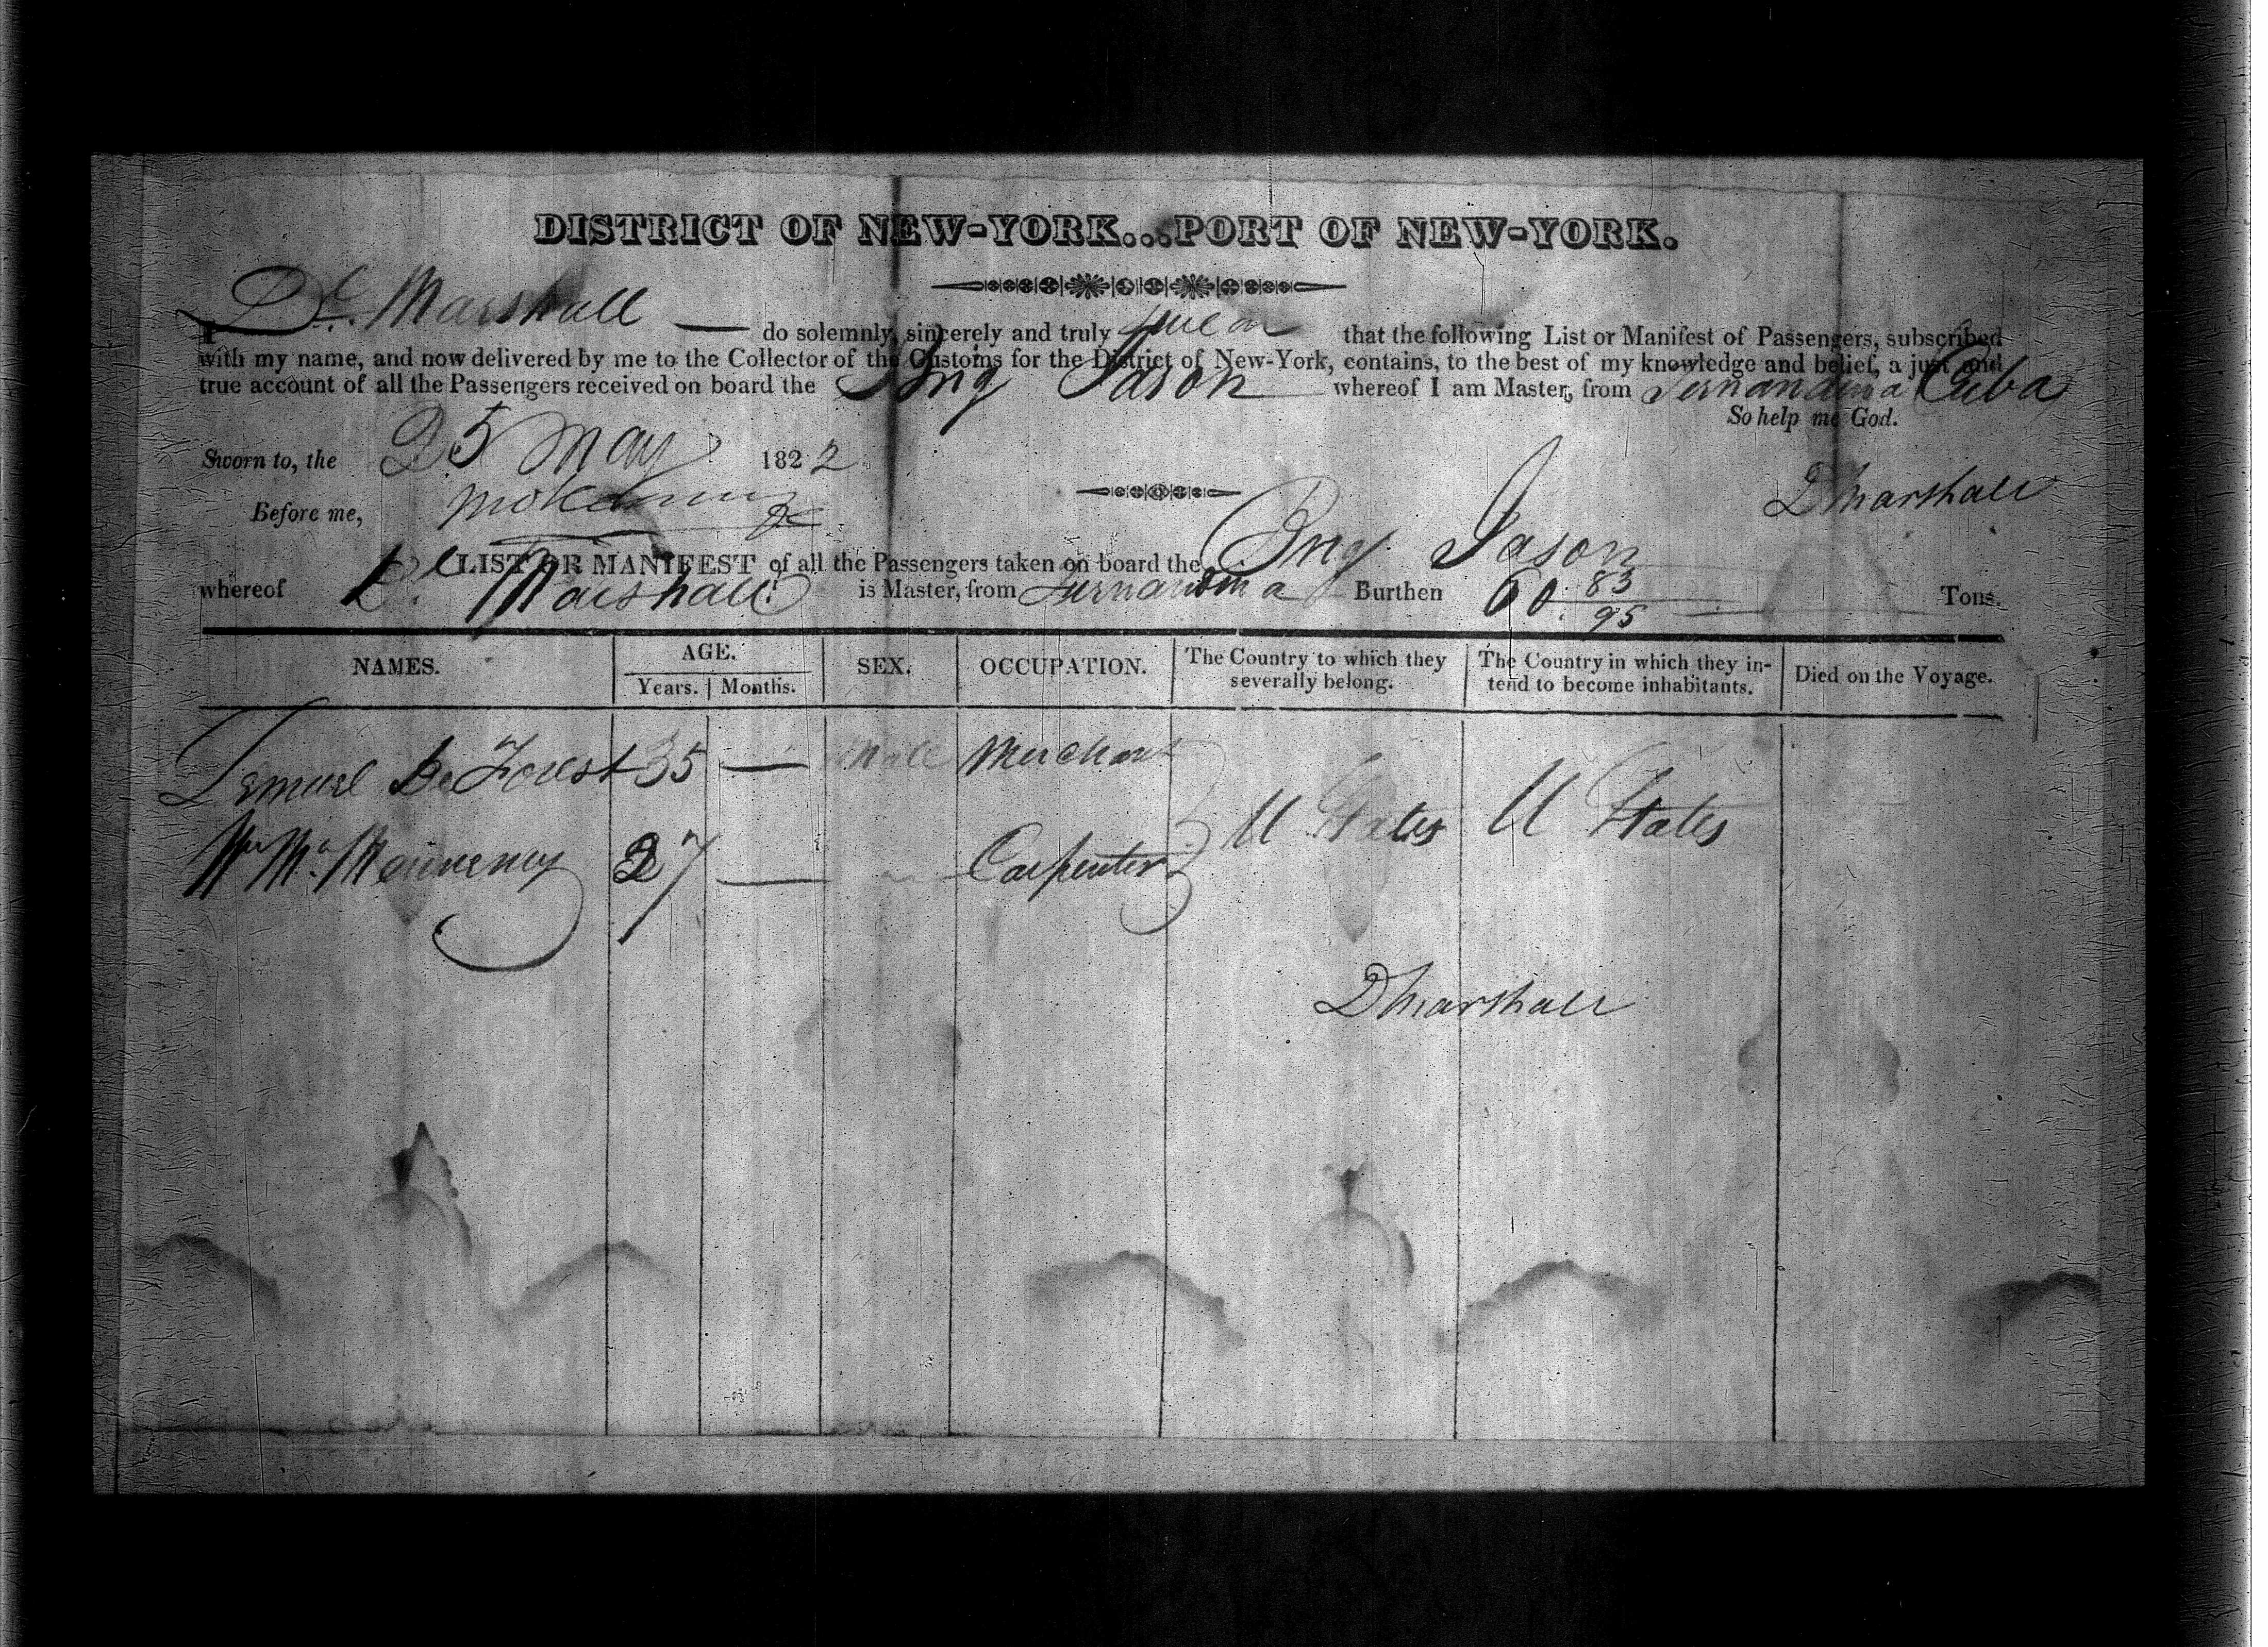 DISTRICT OF NEW-YORK...PORT OF NEW-YORK.
I Dl. Marshall — do solemnly, sincerely and truly swear that the following List or Manifest of Passengers, subscribed
with my name, and now delivered by me to the Collector of the Customs for the District of New-York, contains, to the best of my knowledge and belief, a just and
true account of all the Passengers received on board the Brig Jason whereof I am Master, from Fernandina Cuba
So help me God.
Sworn to, the 25 May 1822
D Marshall
Before me,
LIST OR MANIFEST of all the Passengers taken on board the Brig Jason
whereof Dl. Marshall is Master, from Fernandina Burthen 60 83/95 Tons.
NAMES. AGE. SEX. OCCUPATION. The Country to which they severally belong. The Country in which they intend to become inhabitants. Died on the Voyage.
Years. Months.
Lemuel De Forest 35 — Male Merchant
U States U States
Wm Mc 27 — Carpenter
D Marshall